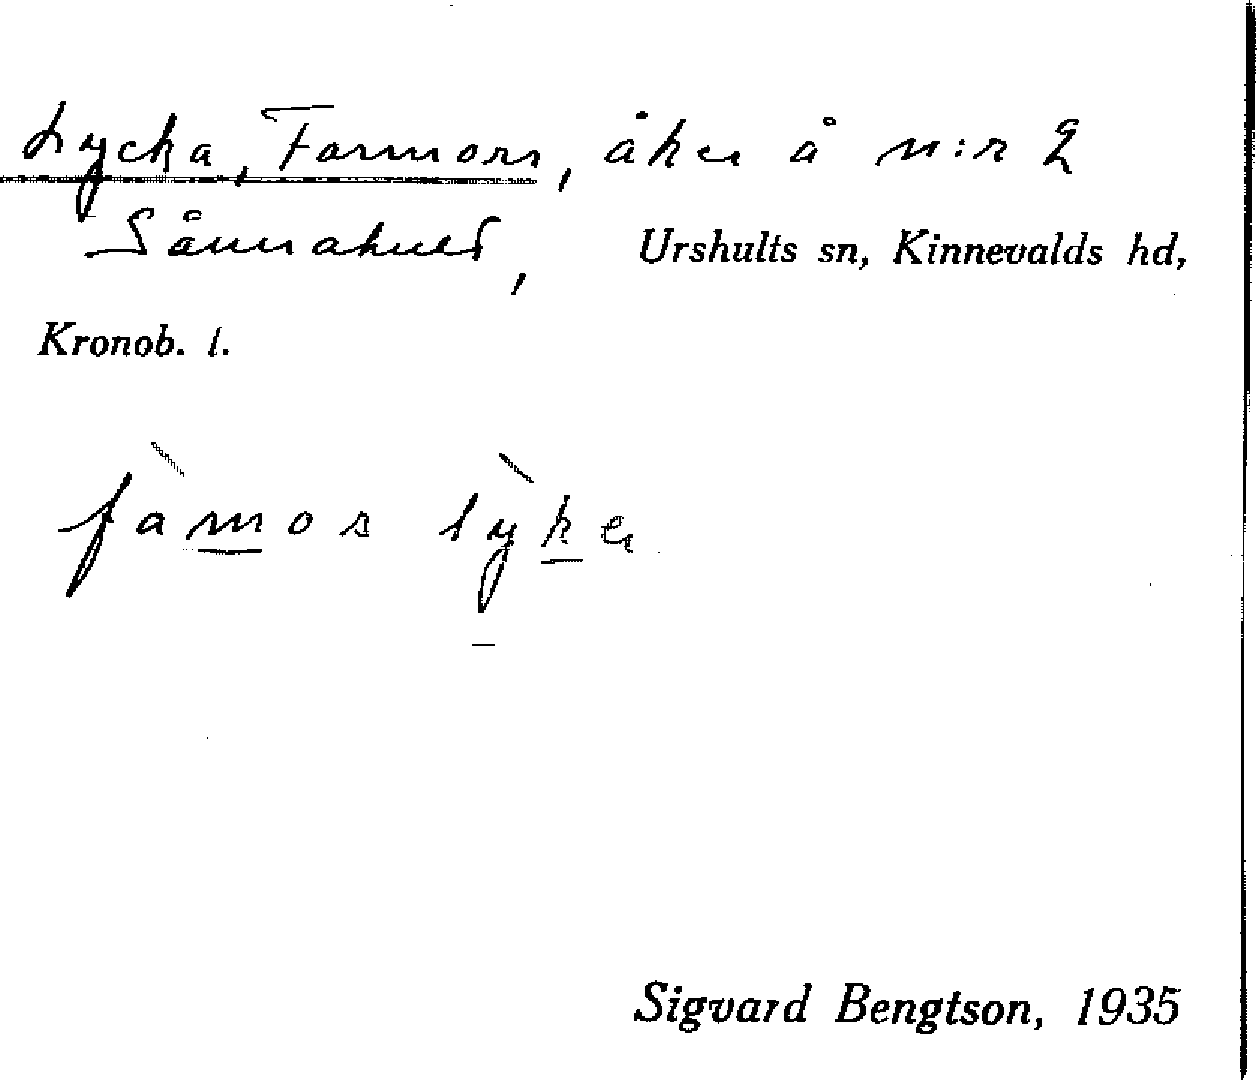 Lycka, Farmors, åker å n:r 2
Sånnahult, Urshults sn, Kinnevalds hd,
Kronob. l.
fàmos lỳka
Sigvard Bengtson, 1935